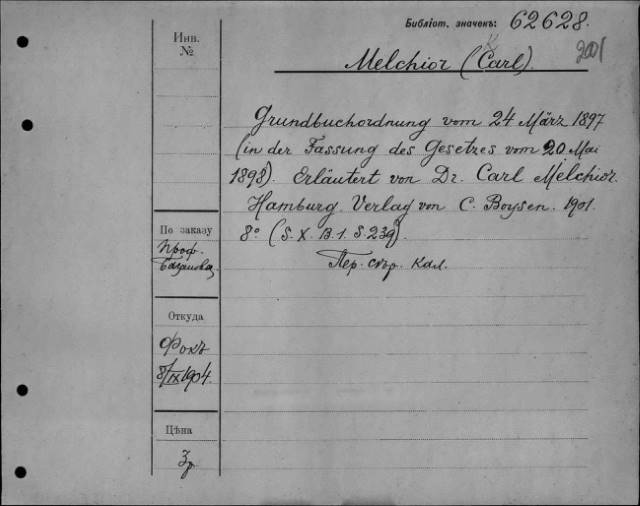 Библіот. значекъ: 62628.
Инв. №
2001
Melchior (Carl).
Grundbuchordnung vom 24 März 1897
(in der Fassung des Gesetzes vom 20 Mai
1898). Erläutert von Dr. Carl Melchior.
Hamburg. Verlag von C. Boysen. 1901.
8° (S. X. B. 1. S. 239).
Пер. скор. кал.
По заказу
Проф.
Откуда
Фокъ
8/IX 1904.
Цѣна
3 р